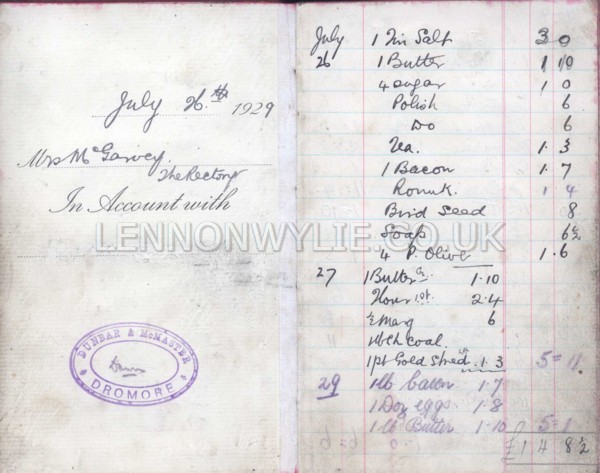 July 26th 1929
Mrs McGarvey.
The Rectory
In Account with
DUNBAR & McMASTER
DROMORE
LENNONWYLIE.CO.UK
July 1 Tin Salt 3 0
26 1 Butter 1 10
4 Sugar 1 0
Polish 6
Do 6
Tea. 1.3
1 Bacon 1.7
Ronuk. 1 4
Bird Seed 8
Soap 6½
4 P. Olive 1.6
27 1 Butter 1.10
Flour 2.4
½ Marg 6
coal.
1 pt Gold Shred 1.3 5=11.
29 1 lb bacon 1.7
1 Doz eggs 1.8
1 lb Butter 1.10 5=1
£1 4 8½